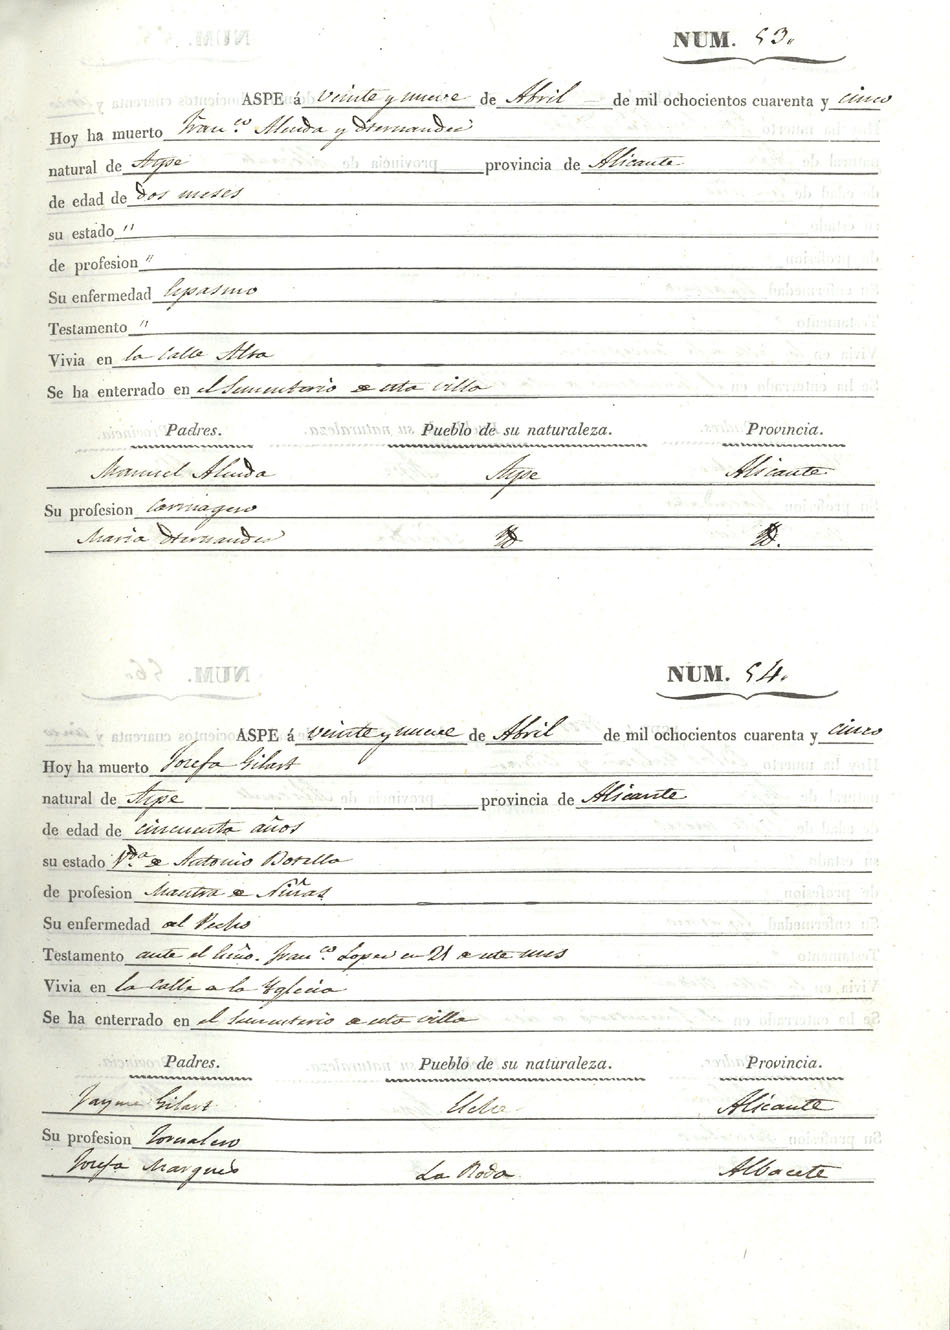 NUM. 53.
ASPE á veinte y nueve de Abril de mil ochocientos cuarenta y cinco
Hoy ha muerto Fran.co Alenda y Hernandez
natural de Aspe provincia de Alicante
de edad de dos meses
su estado "
de profesion "
Su enfermedad Espasmo
Testamento "
Vivia en la Calle
Se ha enterrado en el Sementerio de esta villa
Padres. Pueblo de su naturaleza. Provincia.
Manuel Alenda Aspe Alicante
Su profesion Carruagero
Maria Hernandez Yd Yd.
NUM. 54.
ASPE á veinte y nueve de Abril de mil ochocientos cuarenta y cinco
Hoy ha muerto Josefa Gilart
natural de Aspe provincia de Alicante
de edad de cincuenta años
su estado V.da de Antonio Botella
de profesion Maestra de Niñas
Su enfermedad del Pecho
Testamento ante el Esño. Fran.co Lopez en 21 de este mes
Vivia en la Calle de la Yglesia
Se ha enterrado en el Sementerio de esta villa
Padres. Pueblo de su naturaleza. Provincia.
Jayme Gilart Elche Alicante
Su profesion Jornalero
Josefa Marques La Roda Albacete